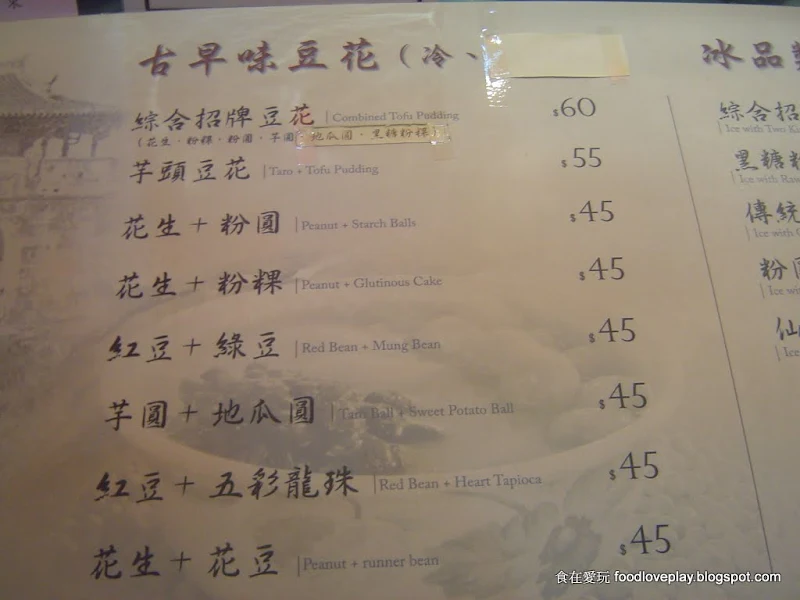 古早味豆花（冷、
綜合招牌豆花 | Combined Tofu Pudding $60
（花生．粉粿．粉圓．芋圓．地瓜圓．黑糖粉粿）
芋頭豆花 | Taro + Tofu Pudding $55
花生＋粉圓 | Peanut + Starch Balls $45
花生＋粉粿 | Peanut + Glutinous Cake $45
紅豆＋綠豆 | Red Bean + Mung Bean $45
芋圓＋地瓜圓 | Taro Ball + Sweet Potato Ball $45
紅豆＋五彩龍珠 | Red Bean + Heart Tapioca $45
花生＋花豆 | Peanut + runner bean $45
冰品
綜合招
| Ice with Two K
黑糖粉
| Ice with Raw
傳統
| Ice with
粉圓
| Ice wi
仙
| Ice
食在愛玩 foodloveplay.blogspot.com